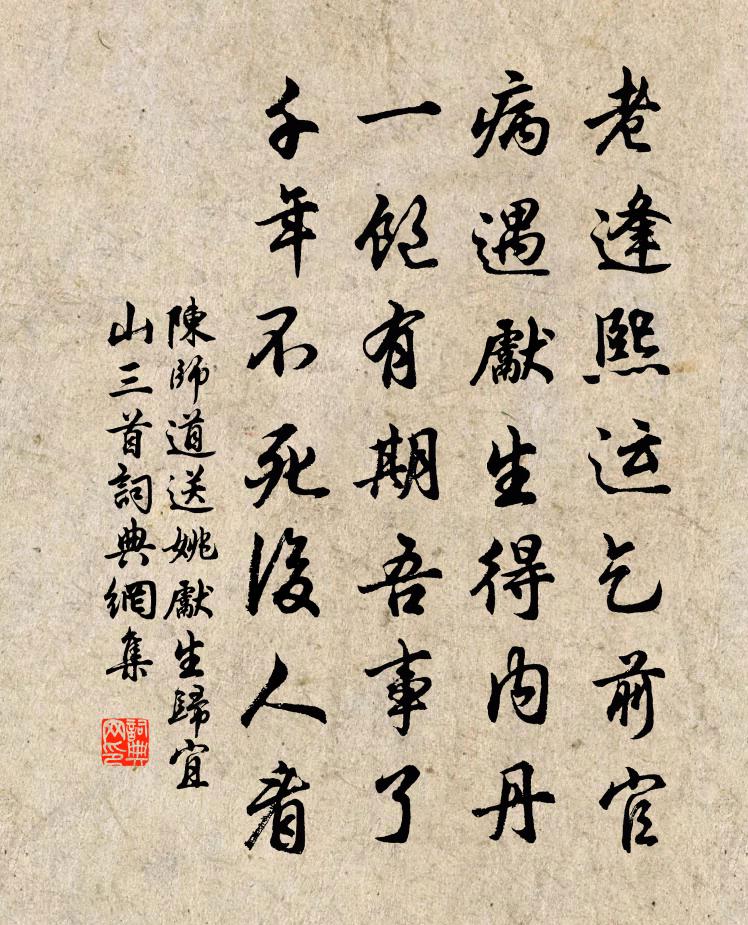 老逢熙运乞前官
病遇獻生得内丹
一飽有期吾事了
千年不死後人看
陳師道送姚獻生歸宜
山三首詞典網集
詞典网印